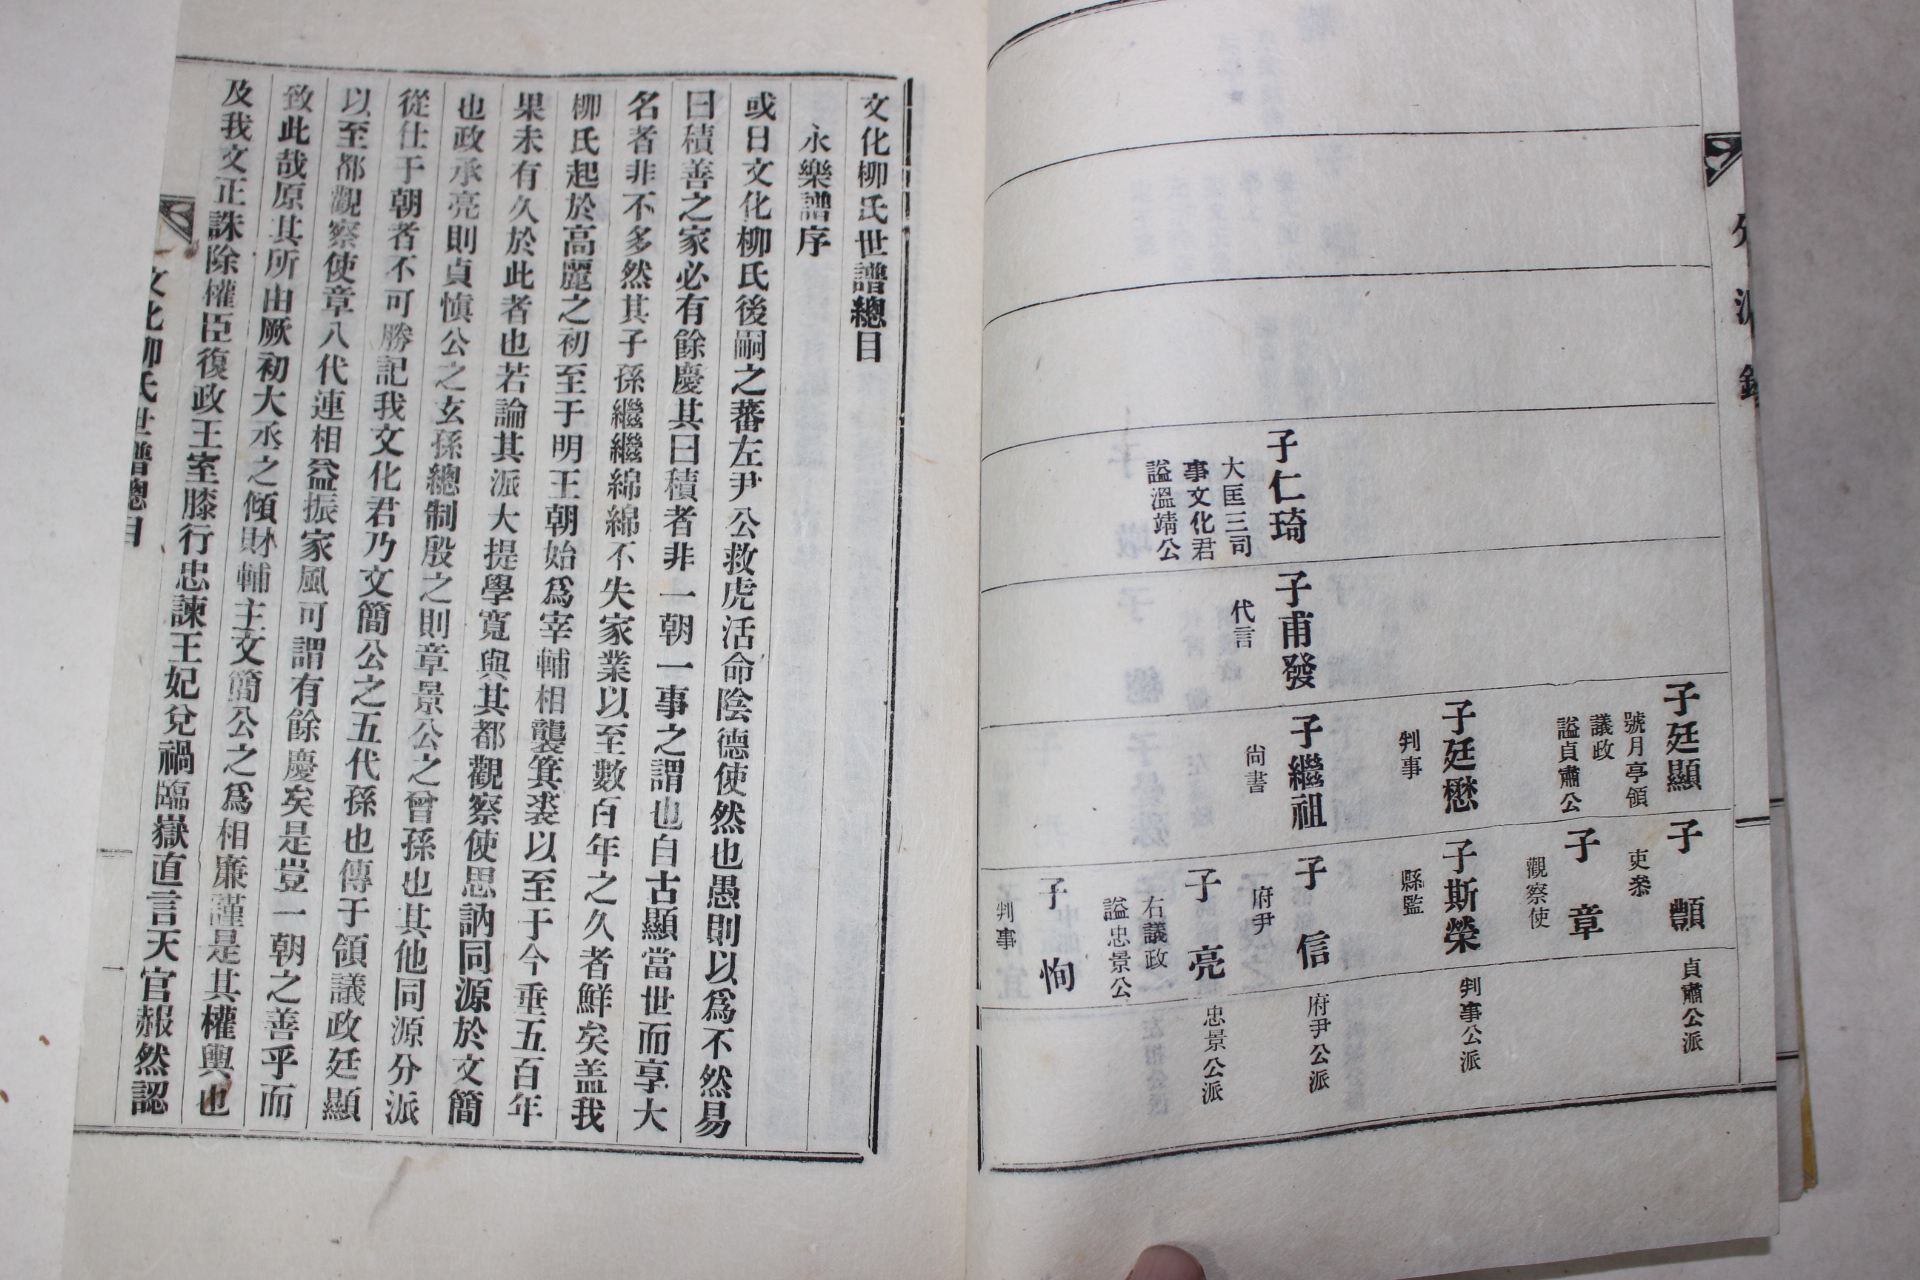 子廷顯
號月亭領
議政
諡貞肅公
子顫
吏叅
貞肅公派
子章
觀察使
子廷懋
判事
子斯榮
縣監
判事公派
子仁琦
大匡三司
事文化君
諡溫靖公
子甫發
代言
子繼祖
尙書
子信
府尹
府尹公派
子亮
右議政
諡忠景公
忠景公派
子恂
判事
文化柳氏世譜總目
永樂譜序
或曰文化柳氏後嗣之蕃左尹公救虎活命陰德使然也愚則以爲不然易
曰積善之家必有餘慶其曰積者非一朝一事之謂也自古顯當世而享大
名者非不多然其子孫繼繼綿綿不失家業以至數百年之久者鮮矣盖我
柳氏起於高麗之初至于明王朝始爲宰輔相襲箕裘以至于今垂五百年
果未有久於此者也若論其派大提學寬與其都觀察使思訥同源於文簡
也政承亮則貞愼公之玄孫總制殷之則章景公之曾孫也其他同源分派
從仕于朝者不可勝記我文化君乃文簡公之五代孫也傳于領議政廷顯
以至都觀察使章八代連相益振家風可謂有餘慶矣是豈一朝之善乎而
致此哉原其所由厥初大丞之傾財輔主文簡公之爲相廉謹是其權輿也
及我文正誅除權臣復政王室膝行忠諫王妃兌禍臨嶽直言天官赧然認
文化柳氏世譜總目
一